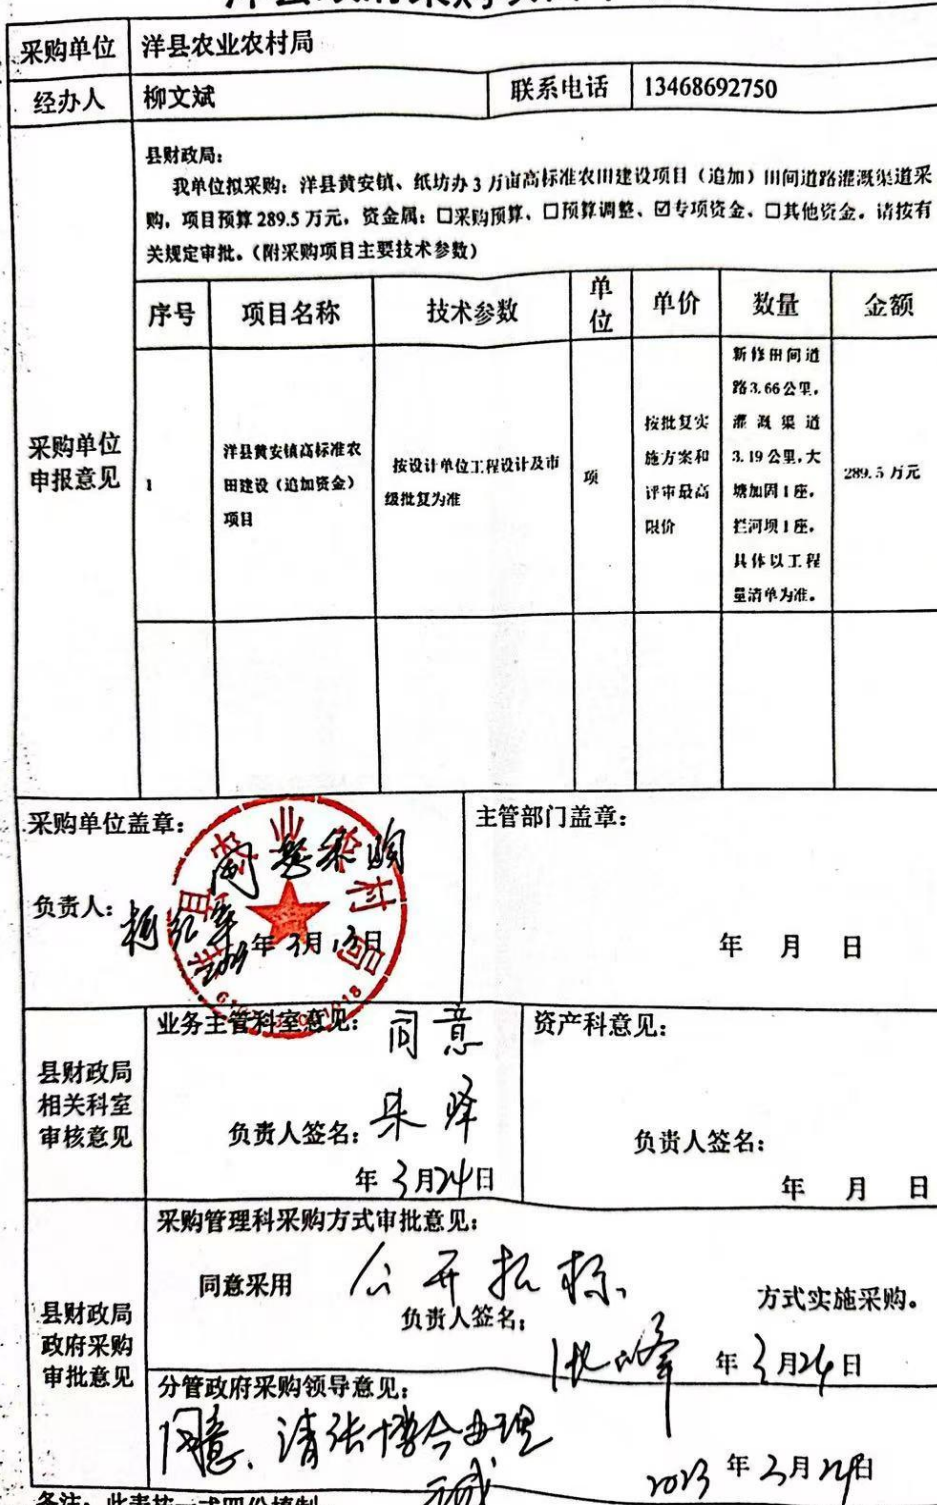 采购单位 洋县农业农村局
经办人 柳文斌 联系电话 13468692750
采购单位
申报意见
县财政局:
我单位拟采购:洋县黄安镇、纸坊办3万亩高标准农田建设项目(追加)田间道路灌溉渠道采
购,项目预算289.5万元,资金属:☐采购预算、☐预算调整、☑专项资金、☐其他资金。请按有
关规定审批。(附采购项目主要技术参数)
序号 项目名称 技术参数 单位 单价 数量 金额
1
洋县黄安镇高标准农
田建设(追加资金)
项目
按设计单位工程设计及市
级批复为准
项
按批复实
施方案和
评审最高
限价
新修田间道
路3.66公里,
灌溉渠道
3.19公里,大
塘加固1座,
拦河坝1座,
具体以工程
量清单为准。
289.5万元
采购单位盖章:
同意采购
负责人:
年3月13日
主管部门盖章:
年 月 日
县财政局
相关科室
审核意见
业务主管科室意见:
同意
负责人签名:
年3月24日
资产科意见:
负责人签名:
年 月 日
县财政局
政府采购
审批意见
采购管理科采购方式审批意见:
同意采用 公开招标 方式实施采购。
负责人签名:
年3月24日
分管政府采购领导意见:
同意、请张博会办理
2023年3月24日
备注:此表按一式四份填制